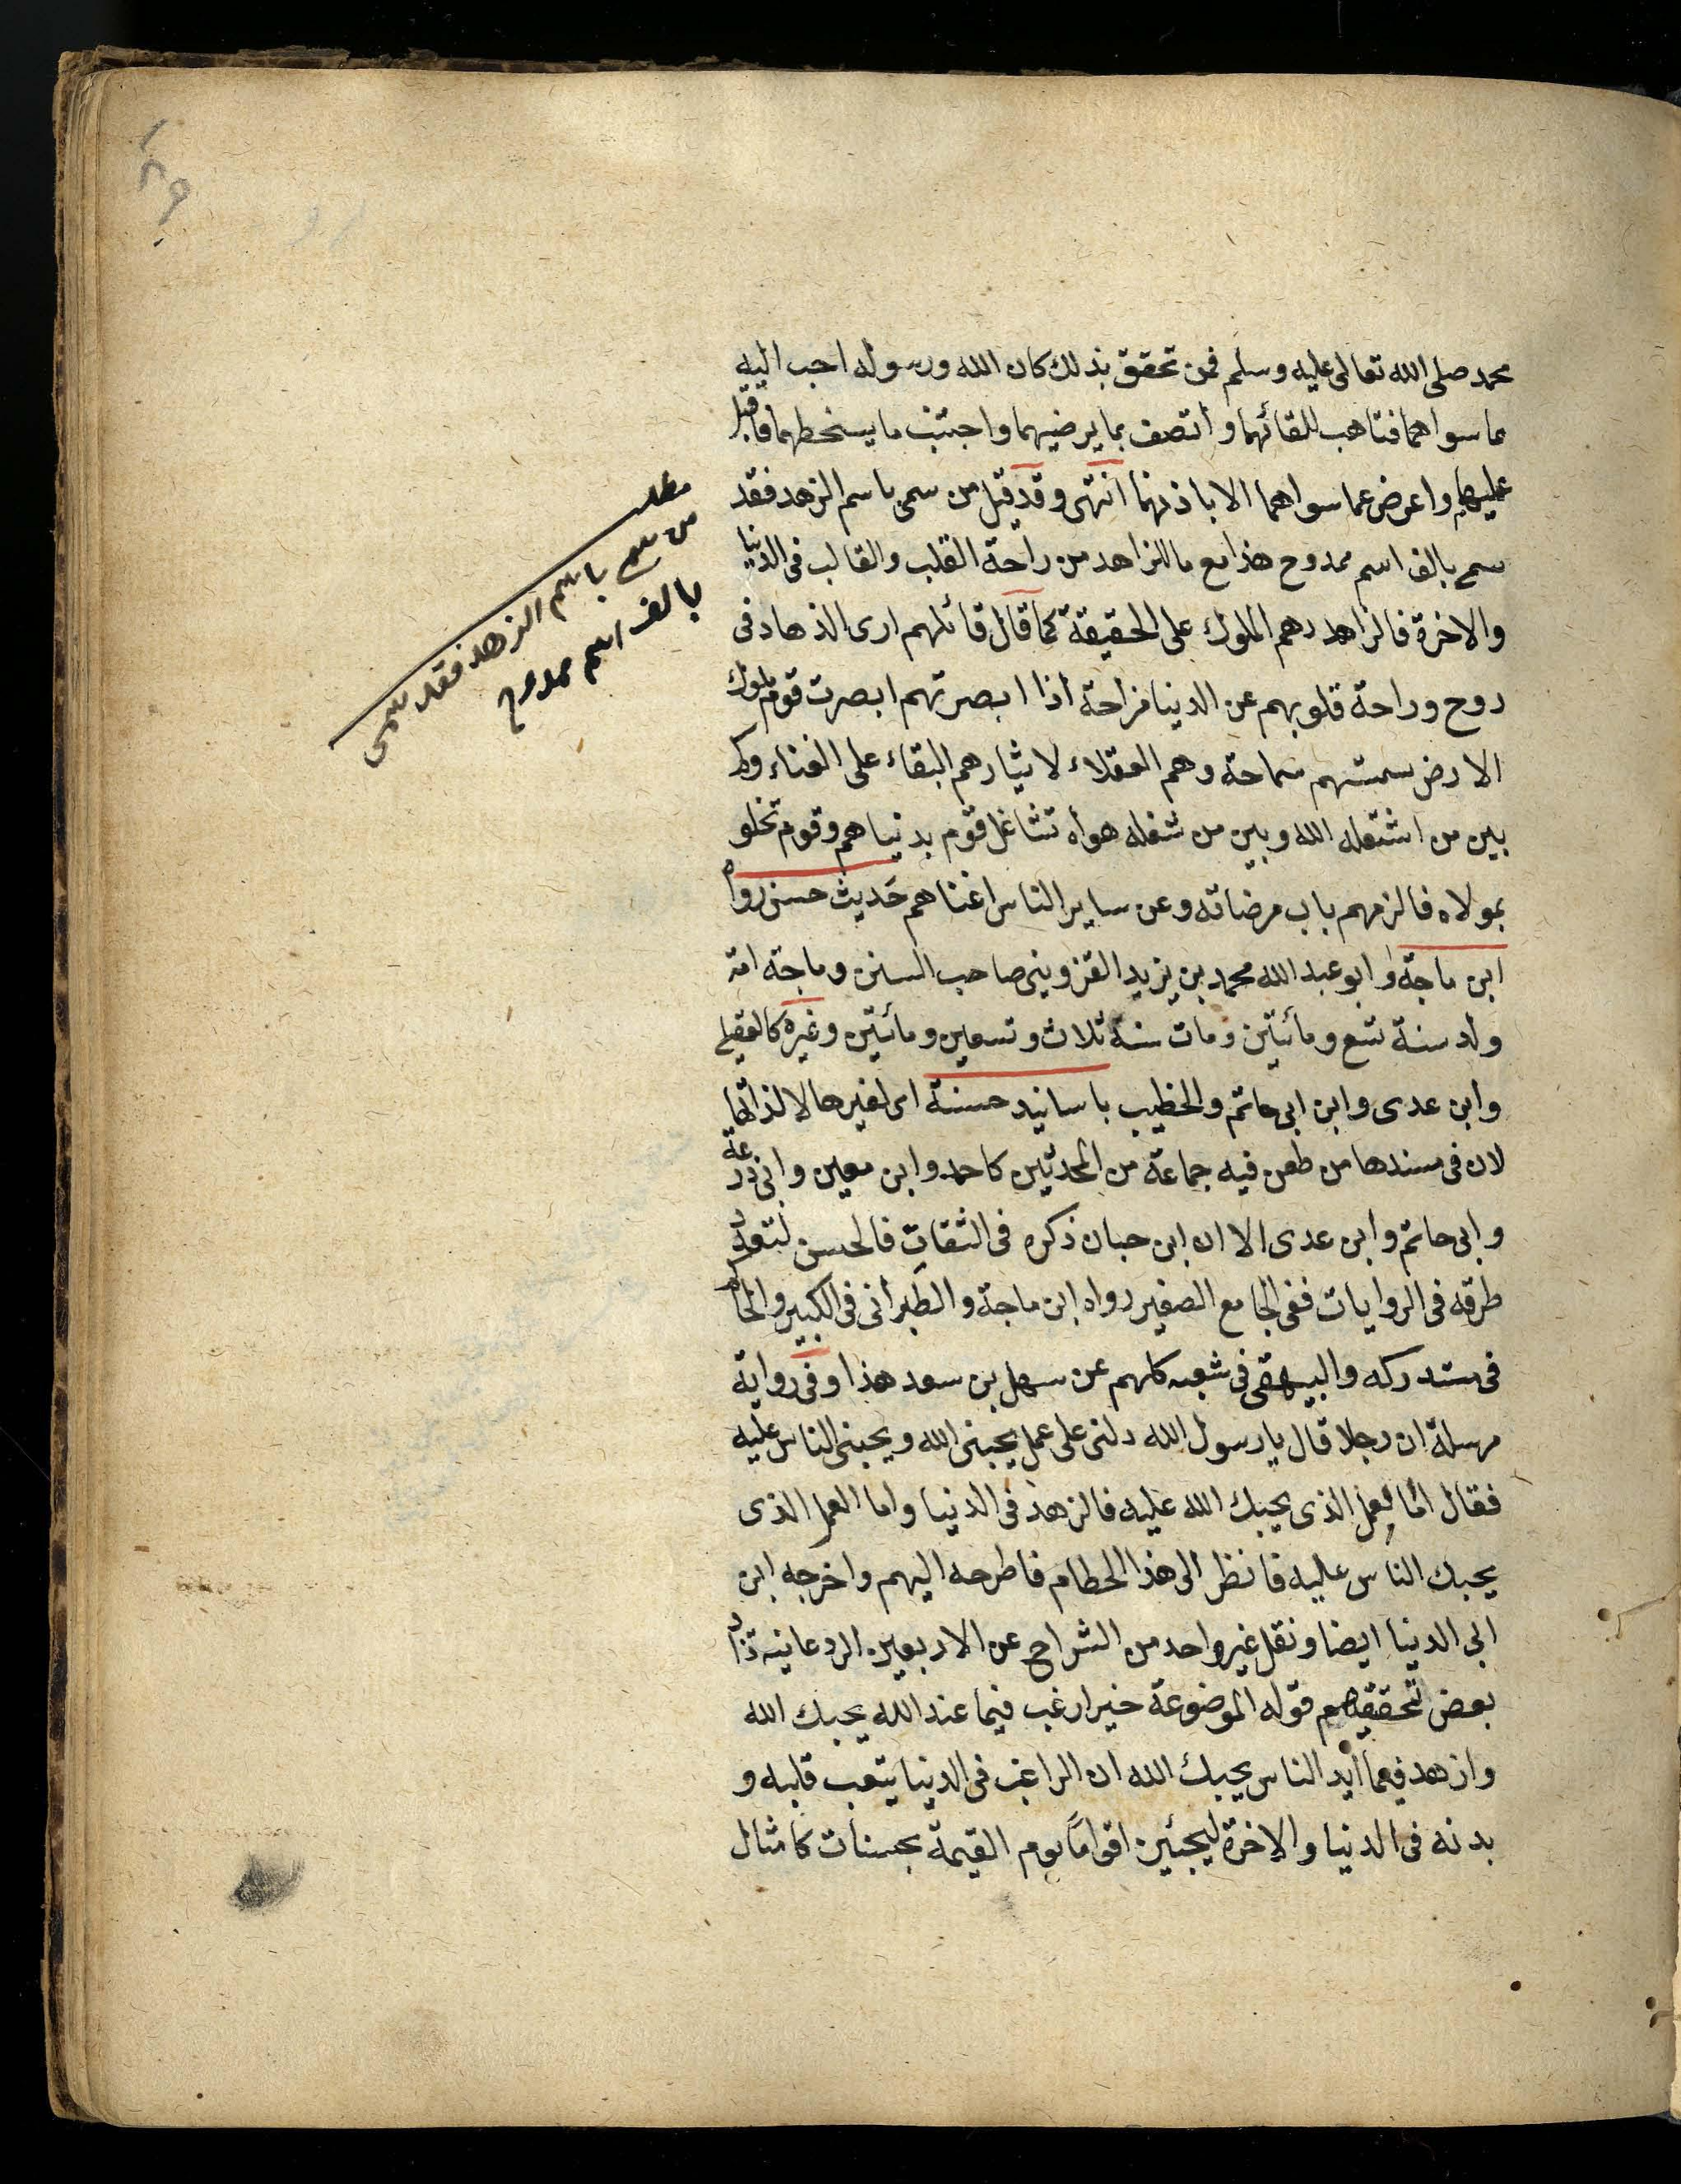 محمد صلى الله تعالى عليه وسلم فمن تحقق بذلك كان الله ورسوله احب اليه
مما سواهما فتاهب للقائهما واتصف بما يرضيهما واجتنب ما يسخطهما فاقبل
عليهما واعرض عما سواهما الا باذنهما انتهى وقد قيل من سمى باسم الزهد فقد
سمى بالف اسم ممدوح هذا مع ما للزاهد من راحة القلب والقالب فى الدنيا
والاخرة فالزاهد رهم الملوك على الحقيقة كما قال قائلهم ارى الذهاد فى
روح وراحة قلوبهم عن الدينا مزاحة اذا ابصرتهم ابصرت قوم ملوك
الارض سمتهم سماحة وهم العقلاء لايثارهم البقاء على الفناء وكم
بين من اشتغله الله وبين من شغله هواه تشاغل قوم بدنياهم وقوم تخلو
بمولاه فالزمهم باب مرضاته وعن ساير الناس اغناهم حديث حسن رواه
ابن ماجة وابو عبد الله محمد بن يزيد القزوينى صاحب السنن وماجة امه
ولد سنة تسع ومأتين ومات سنة ثلاث وتسعين ومائتين وغيره كالعقيلى
وابن عدى وابن ابى حاتم والخطيب باسانيد حسنة اى لغيرها لا لذاتها
لان فى مسندها من طعن فيه جماعة من المحدثين كاحمد وابن معين وابى زرعة
وابى حاتم وابن عدى الا ان ابن حبان ذكره فى الثقات فالحسن لتعدد
طرقه فى الروايات ففى الجامع الصغير رواه ابن ماجة والطبرانى فى الكبير والحاكم
فى مستدركه والبيهقى فى شعبه كلهم عن سهل بن سعد هذا وفى رواية
مرسلة ان رجلا قال يا رسول الله دلنى على عمل يحبنى الله ويحبنى الناس عليه
فقال اما العمل الذى يحبك الله عليه فالزهد فى الدنيا واما العمل الذى
يحبك الناس عليه فانظر الى هذا الحطام فاطرحه اليهم واخرجه ابن
ابى الدنيا ايضا ونقل غير واحد من الشراح عن الاربعين الردعانيه
بعض قوله الموضوعة خبر ارغب فيما عند الله يحبك الله
وازهد فيما ايد الناس يحبك الله ان الراغب فى الدنيا يتعب قلبه و
بدنه فى الدنيا والاخرة ليجيئن اقواما يوم القيمة بحسنات كامثال
مطلب
من سمى باسم الزهد فقد سمى
بالف اسم ممدوح